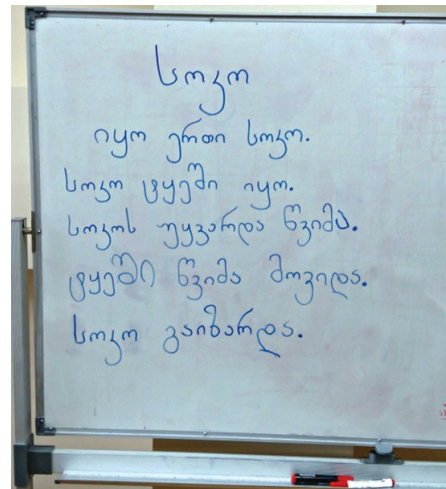 სოკო
იყო ერთი სოკო.
სოკო ტყეში იყო.
სოკოს უყვარდა წვიმა.
ტყეში წვიმა მოვიდა.
სოკო გაიზარდა.